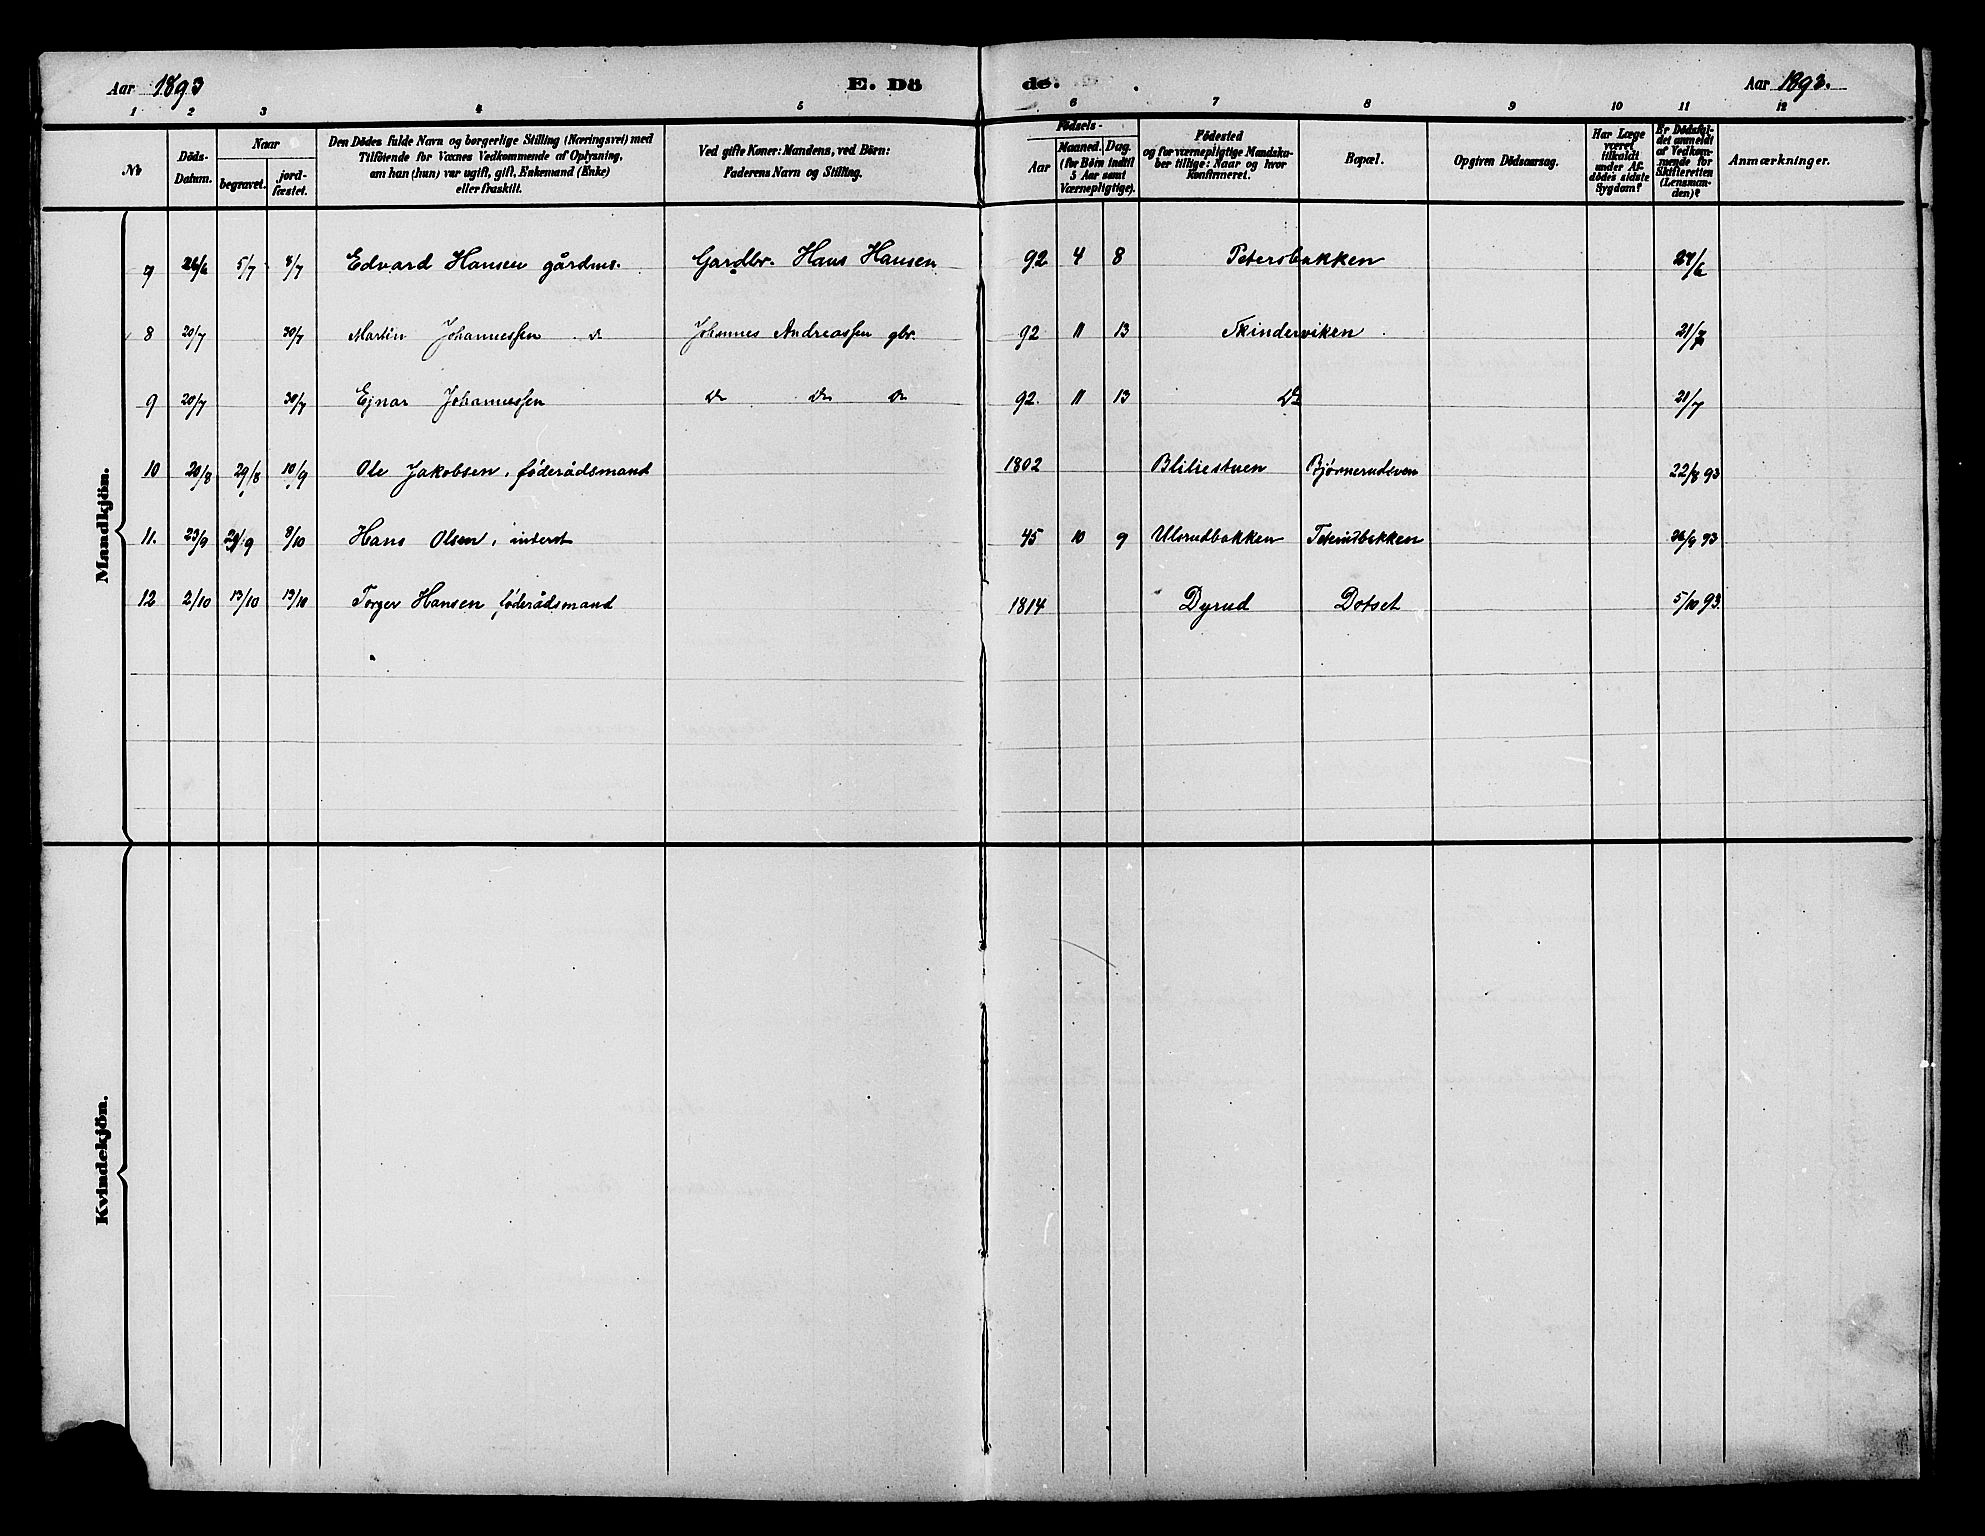 Aar 1893 E. Dö de. Aar 1893.
1 2 3 4 5 6 7 8 9 10 11 12
No
Döds-Datum.
Naar
begravet.
jord-fæstet.
Den Dödes fulde Navn og borgerlige Stilling (Næringsvei) med
Tilföiende for Voxnes Vedkommende af Oplysning,
om han (hun) var ugift, gift, Enkemand (Enke)
eller fraskilt.
Ved gifte Koner: Mandens, ved Börn:
Faderens Navn og Stilling.
Födsels-
Aar
Maaned. Dag.
(for Börn indtil
5 Aar samt
Værnepligtige).
Födested
og for værnepligtige Mandska-
ber tillige: Naar og hvor
konfirmeret.
Bopæl.
Opgiven Dödsaarsag.
Har Læge
været
tilkaldt
under Af-
dödes sidste
Sygdom?
Er Dödsfal-
det anmeldt
af Vedkom-
mende for
Skifteretten
(Lensman-
den)?
Anmærkninger.
Mandkjön.
7 26/6 5/7 8/7 Edvard Hansen gårdms. Gardbr. Hans Hansen 92 4 8 Petersbakken 27/6
8 20/7 30/7 Martin Johannessen do Johannes Andreassen gbr. 92 11 13 Skinderviken 21/7
9 20/7 30/7 Ejnar Johannessen do do do 92. 11 13 Do 21/7
10 20/8 29/8 10/9 Ole Jakobsen, föderådsmand 1802 Bliliestuen Bjørnerudsven 22/8 93
11. 23/9 29/9 8/10 Hans Olsen, inderst 45 10 9 Ulsrudbakken 26/9 93
12 2/10 13/10 13/10 Torger Hansen föderådsmand 1814 Dyrud Dotset 5/10 93.
Kvindekjön.